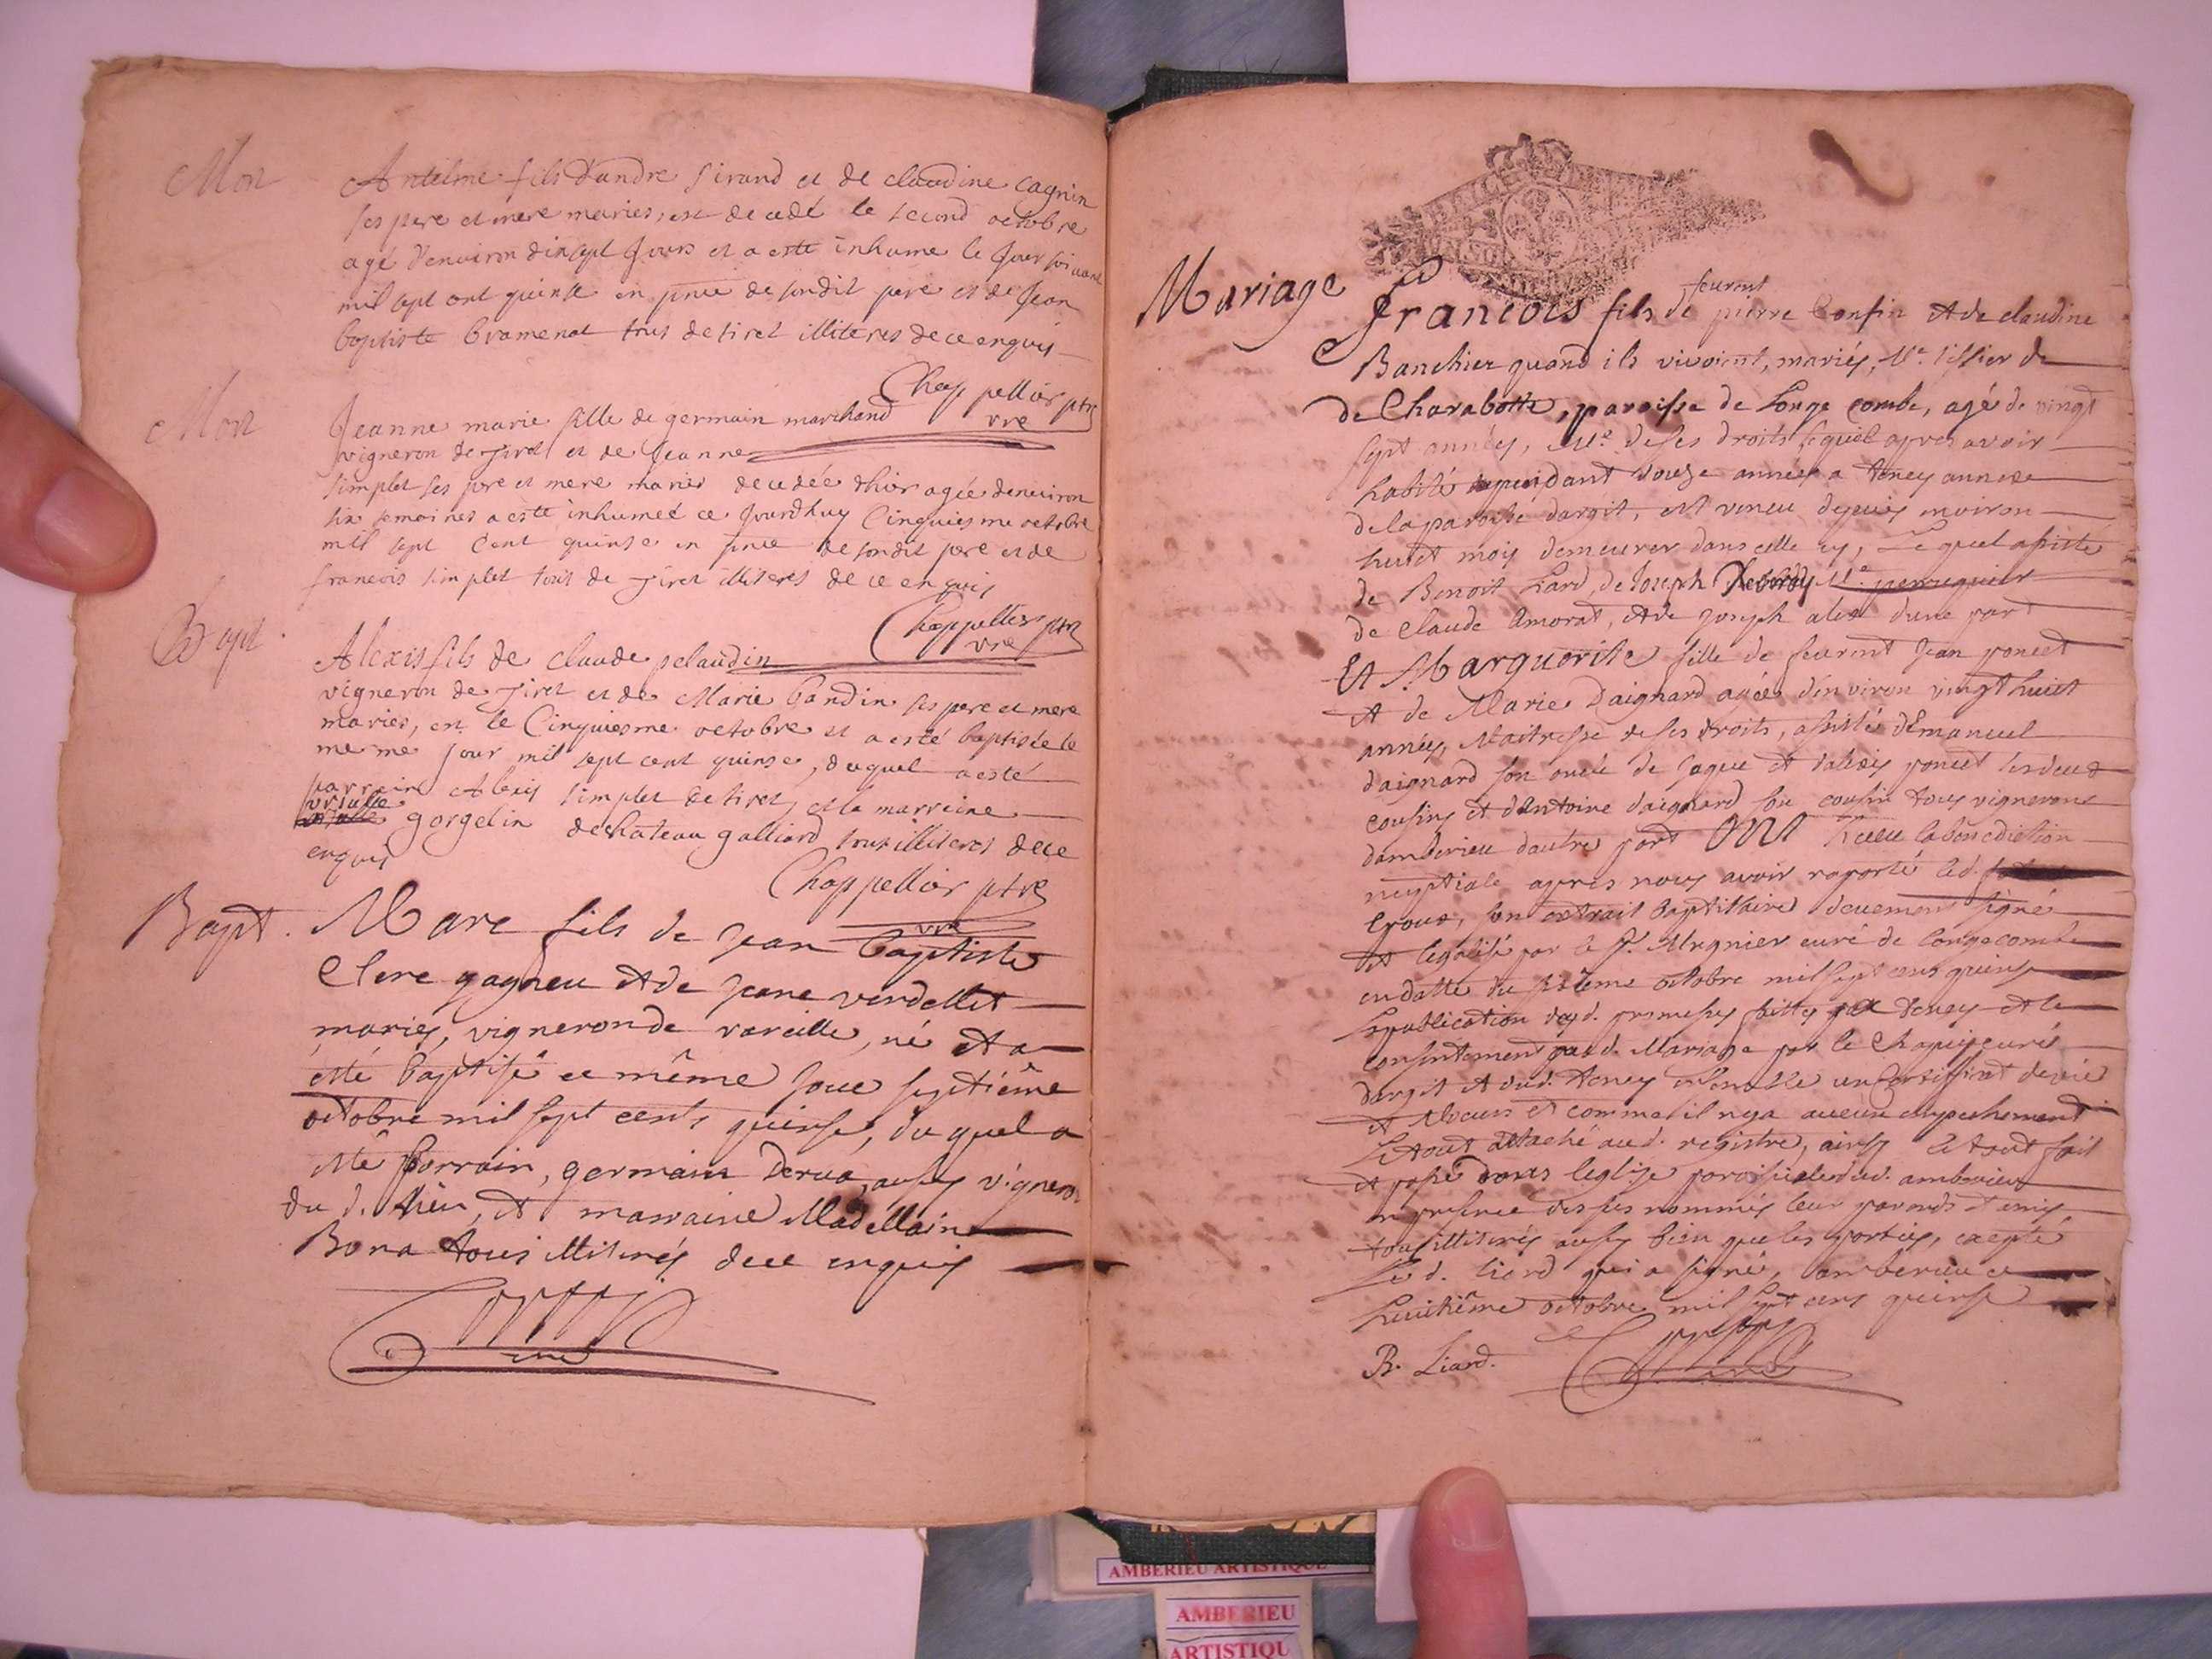 Mort
Antelme fils dandre sirand et de claudine cagnin
ses pere et mere maries, est decedé le second octobre
agé denviron dixsept Jours et a esté inhume le Jour suivant
mil sept cent quinse en pnce de sondit pere et de Jean
baptiste bramenat tous de tiret illiteres de ce enquis
Chappellier ptre
vre
Mort
Jeanne marie fille de germain marchand
vigneron de tiret et de Jeanne
simplet ses pere et mere mariés decedée dhier agée denviron
six semaines a esté inhumeé ce Jourdhuy Cinquiesme octobre
mil sept Cent quinse en pnce de sondit pere et de
francois simplet tous de tiret illiteres de ce enquis
Chappellier ptre
vre
Bapt.
Alexis fils de claude pelaudin
vigneron de tiret et de Marie bandin ses pere et mere
maries, est le Cinquiesme octobre et a esté baptisée le
meme jour mil sept cent quinse, duquel a esté
parrain Alexis simplet de tiret, et la marreine
ursulle
gorgelin de chateau galliard tous illiteres de ce
enquis
Chappellier ptre
vre
Bapt.
Marc fils de Jean Baptiste
Clerc gagneu et de Jeane verdellet
mariés, vigneron de vareille, né et a
été baptisé ce même jour septiême
octobre mil sept cents quinse, du quel a
été parrain, germain aussy vigneron
du d. lieu, et marraine Madellaine
Bona tous illiterés dece enquis
curé
Mariage
feurent
François fils de pierre Confin et de claudine
Banchier quand ils vivoient, mariés, Me. tissier de
de Charabotte, paroisse de Longe combe, agé de vingt
sept années, Me. de ses droits lequel apres avoir
habité pendant douze années a teney annexe
de la paroisse dargit, est veneu depuis environ
huict mois demeurer dans cette cy, Lequel assisté
de Benoit Liard, de Joseph Me. perruquier
de Claude Amorat, et de Joseph alex dune part
Et Marguerite fille de feurent Jean poncet
et de Marie Daignard agée denviron vingt huict
années, Maitresse de ses droits, assistée dEmanuel
daignard son oncle de Jaque et dalexis poncet les deux
cousins et dantoine daignard son cousin tous vignerons
damberieu dautre part Ont Receu la benediction
neuptiale apres nous avoir raporté led.
Epoux, son extrait baptistaire deuement signé
et legalisé par le Sr. Mugnier curé de longecombe
en datte du sixième octobre mil sept cens quinse
la publication desd. promesses faittes par teney et le
consentement aud. Mariage par le Sr. curé
dargit et dud. teney ensemble un Certifficat de vie
et Moeurs et comme il nya aucun empechement
Le tout attaché aud. registre, ainsy le tout fait
et passé dans leglise paroissielle dud. amberieu
en presence des sus nommés leur parents et amis
tous illiterés aussy bien que les parties, excepté
Led. Liard qui a signé, amberieu ce
huictiême octobre mil sept cens quinse
B. Liard.
curé
AMBERIEU ARTISTIQUE
AMBERIEU
ARTISTIQU